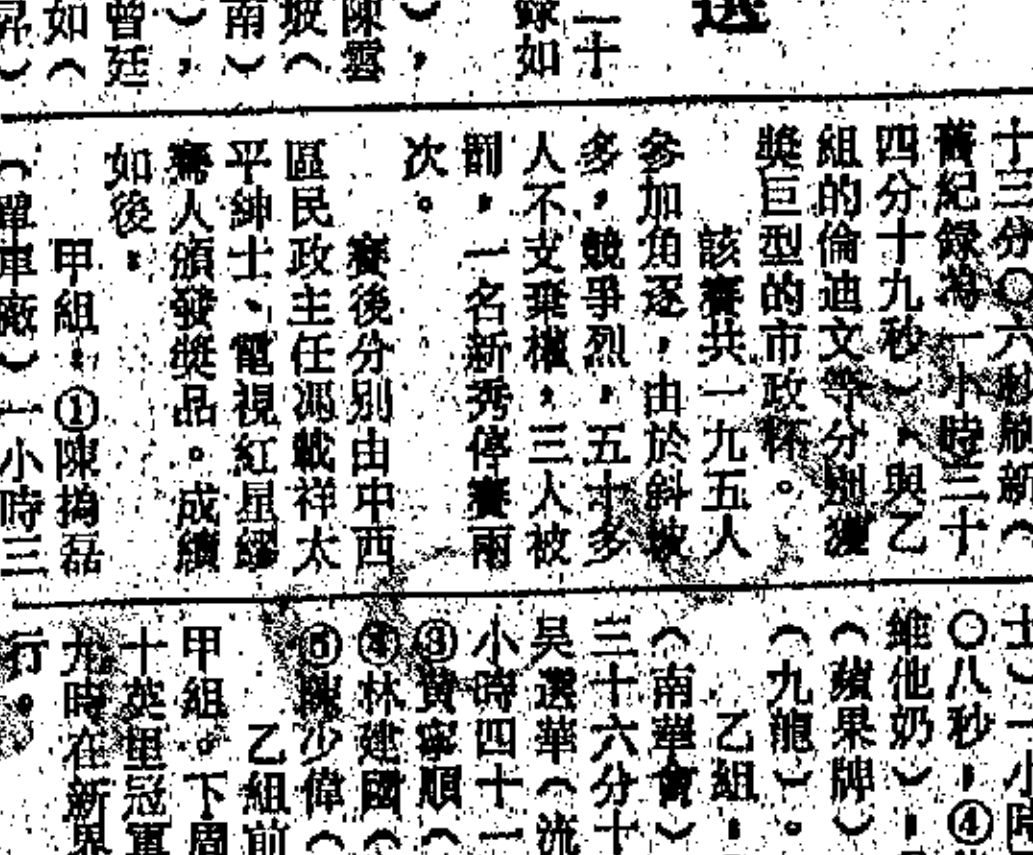 選
二十
錄如
），
陳雲
坡（
南）
），
曾廷
如（
昇）
十三分〇六秒刷新（
舊紀錄為一小時三十
四分十九秒），與乙
組的倫迪文等分別獲
獎巨型的市政杯。
該賽共一九五人
參加角逐，由於斜坡
多，競爭烈，五十多
人不支棄權，三人被
罰，一名新秀停賽兩
次。
賽後分別由中西
區民政主任馮載祥太
平紳士、電視紅星繆
騫人頒發獎品。成績
如後：
甲組：①陳撝磊
（單車廠）一小時三
士）一小時
〇八秒，④
維他奶），
（蘋果牌）
（九龍）。
乙組：
（南華會）
三十六分十
吳選華（流
小時四十一
③黃寧順（
④林建國（
⑤陳少偉（
乙組前
甲組。下周
十英里冠軍
九時在新界
行。